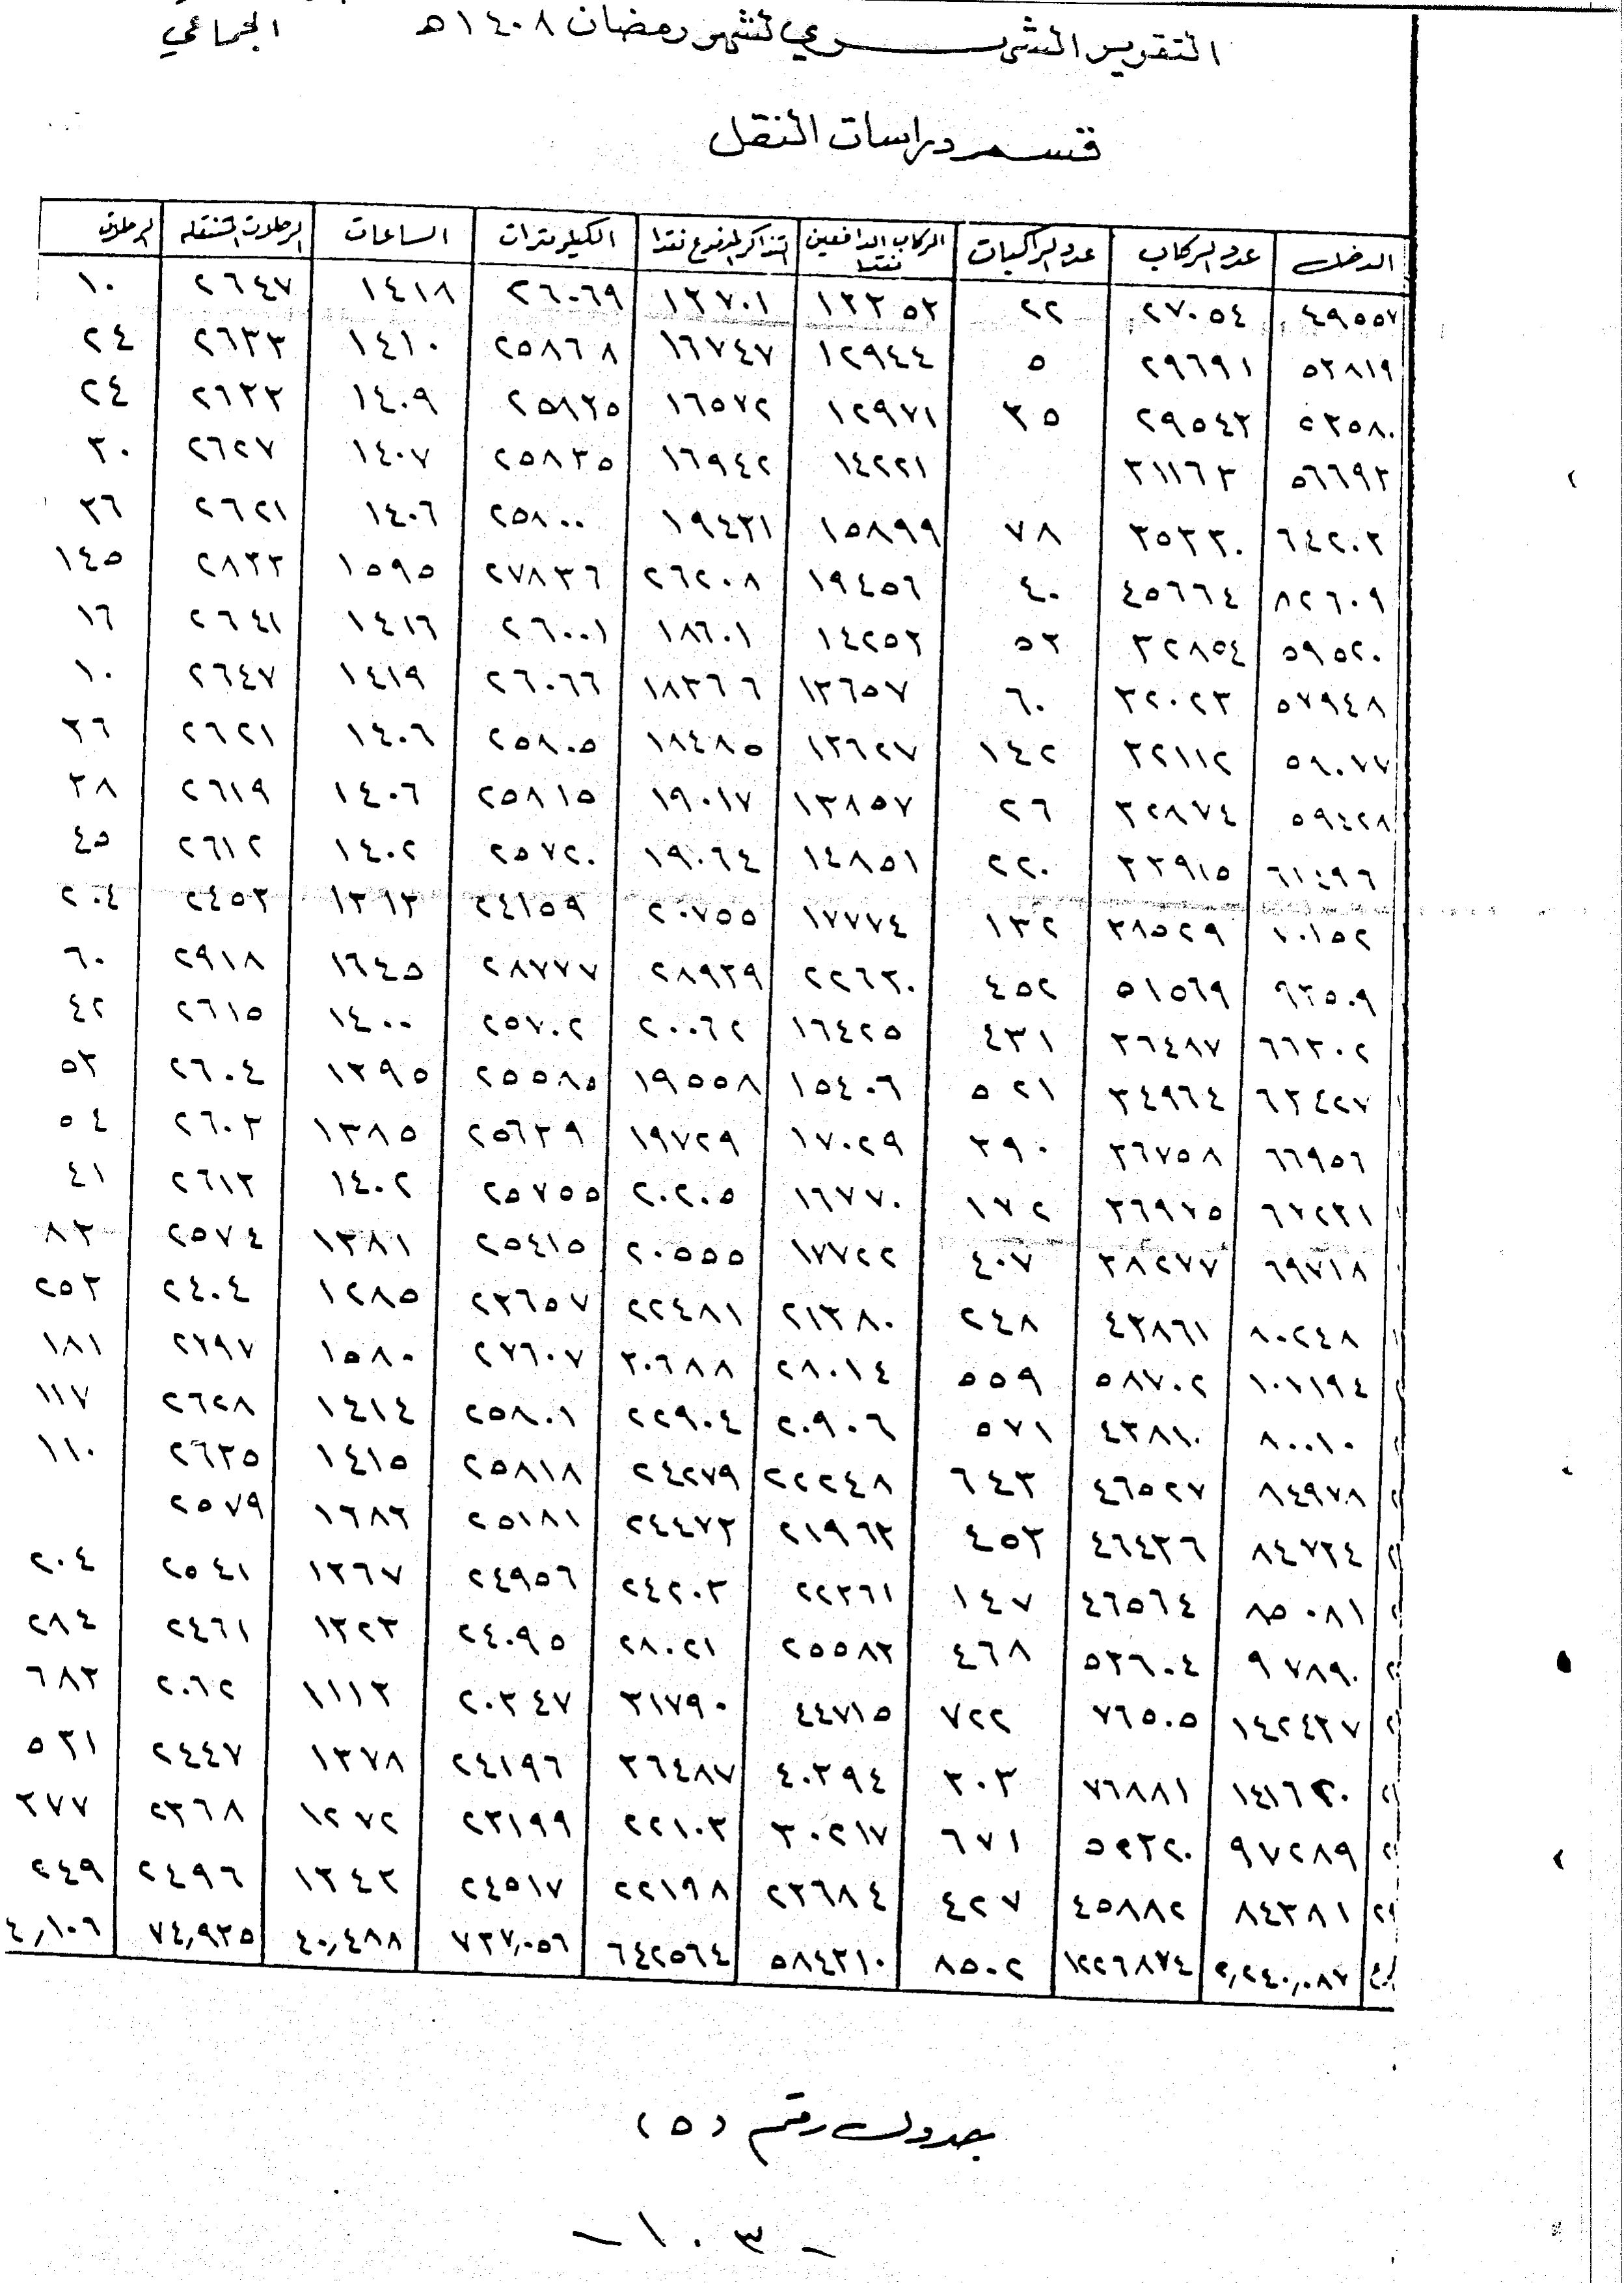 التقرير الشهري لشهر رمضان ١٤٠٨هـ الجماعي
قسم دراسات النقل
الدخل عدد الركاب عدد الراكبات الركاب الدافعين نقدا التذاكر المدفوع نقدا الكيلومترات الساعات الرحلات المنتقله الرحلات
٤٩٥٥٧ ٢٧٠٥٤ ٢٢ ١٣٣٥٣ ١٣٧٠١ ٢٦٠٦٩ ١٤١٨ ٢٦٤٧ ١٠
٥٣٨١٩ ٢٩٦٩١ ٥ ١٢٩٤٤ ١٦٧٤٧ ٢٥٨٦٨ ١٤١٠ ٢٦٣٣ ٢٤
٥٣٥٨٠ ٢٩٥٤٣ ٣٥ ١٢٩٧١ ١٦٥٧٢ ٢٥٨٣٥ ١٤٠٩ ٢٦٣٣ ٢٤
٥٦٦٩٣ ٣١١٦٣ ١٤٢٢١ ١٦٩٤٢ ٢٥٨٣٥ ١٤٠٧ ٢٦٢٧ ٣٠
٦٤٢٠٣ ٣٥٣٣٠ ٧٨ ١٥٨٩٩ ١٩٤٣١ ٢٥٨٠٠ ١٤٠٦ ٢٦٢١ ٣٦
٨٢٦٠٩ ٤٥٦٦٤ ٤٠ ١٩٤٥٦ ٢٦٢٠٨ ٢٧٨٣٦ ١٥٩٥ ٢٨٣٣ ١٤٥
٥٩٥٢٠ ٣٢٨٥٤ ٥٣ ١٤٢٥٣ ١٨٦٠١ ٢٦٠٠١ ١٤١٦ ٢٦٤١ ١٦
٥٧٩٤٨ ٣٢٠٢٣ ٦٠ ١٣٦٥٧ ١٨٣٦٦ ٢٦٠٦٦ ١٤١٩ ٢٦٤٧ ١٠
٥٨٠٧٧ ٣٢١١٢ ١٤٢ ١٣٦٢٧ ١٨٤٨٥ ٢٥٨٠٥ ١٤٠٦ ٢٦٢١ ٣٦
٥٩٤٢٨ ٣٢٨٧٤ ٢٦ ١٣٨٥٧ ١٩٠١٧ ٢٥٨١٥ ١٤٠٦ ٢٦١٩ ٣٨
٦١٤٩٦ ٣٣٩١٥ ٢٢٠ ١٤٨٥١ ١٩٠٦٤ ٢٥٧٢٠ ١٤٠٢ ٢٦١٢ ٤٥
٣٨٥٢٩ ١٣٢ ١٧٧٧٤ ٢٠٧٥٥ ٢٤١٥٩ ١٣١٣ ٢٤٥٣ ٢٠٤
٩٣٥٠٩ ٥١٥٦٩ ٤٥٢ ٢٢٦٣٠ ٢٨٩٣٩ ٢٨٧٧٧ ١٦٤٥ ٢٩١٨ ٦٠
٦٦٣٠٢ ٣٦٤٨٧ ٤٣١ ١٦٤٢٥ ٢٠٠٦٢ ٢٥٧٠٢ ١٤٠٠ ٢٦١٥ ٤٢
٦٣٤٢٧ ٣٤٩٦٤ ٥٢١ ١٥٤٠٦ ١٩٥٥٨ ٢٥٥٨٥ ١٣٩٥ ٢٦٠٤ ٥٣
٦٦٩٥٦ ٣٦٧٥٨ ٣٩٠ ١٧٠٢٩ ١٩٧٢٩ ٢٥٦٣٩ ١٣٨٥ ٢٦٠٣ ٥٤
٦٧٢٣١ ٣٦٩٧٥ ١٧٢ ١٦٧٧٠ ٢٠٢٠٥ ٢٥٧٥٥ ١٤٠٢ ٢٦١٣ ٤١
٦٩٧١٨ ٣٨٢٧٧ ٤٠٧ ١٧٧٢٢ ٢٠٥٥٥ ٢٥٤١٥ ١٣٨١ ٢٥٧٤ ٨٣
٨٠٢٤٨ ٤٣٨٦١ ٢٤٨ ٢١٣٨٠ ٢٢٤٨١ ٢٣٦٥٧ ١٢٨٥ ٢٤٠٤ ٢٥٣
١٠٧١٩٤ ٥٨٧٠٢ ٥٥٩ ٢٨٠١٤ ٣٠٦٨٨ ٢٧٦٠٧ ١٥٨٠ ٢٧٩٧ ١٨١
٨٠٠١٠ ٤٣٨١٠ ٥٧١ ٢٠٩٠٦ ٢٢٩٠٤ ٢٥٨٠١ ١٤١٤ ٢٦٢٨ ١١٧
٨٤٩٧٨ ٤٦٥٢٧ ٦٤٣ ٢٢٢٤٨ ٢٤٢٧٩ ٢٥٨١٨ ١٤١٥ ٢٦٣٥ ١١٠
٨٤٧٣٤ ٤٦٤٣٦ ٤٥٣ ٢١٩٦٣ ٢٤٤٧٣ ٢٥١٨١ ١٦٨٣ ٢٥٧٩
٨٥٠٨١ ٤٦٥٦٤ ١٤٧ ٢٢٣٦١ ٢٤٢٠٣ ٢٤٩٥٦ ١٣٦٧ ٢٥٤١ ٢٠٤
٩٧٨٩٠ ٥٣٦٠٤ ٤٦٨ ٢٥٥٨٣ ٢٨٠٢١ ٢٤٠٩٥ ١٣٢٣ ٢٤٦١ ٢٨٤
١٤٢٤٣٧ ٧٦٥٠٥ ٧٢٢ ٤٤٧١٥ ٣١٧٩٠ ٢٠٣٤٧ ١١١٣ ٢٠٦٢ ٦٨٣
١٤١٦٣٠ ٧٦٨٨١ ٣٠٣ ٤٠٣٩٤ ٣٦٤٨٧ ٢٤١٩٦ ١٣٧٨ ٢٤٤٧ ٥٣١
٩٧٢٨٩ ٥٢٣٢٠ ٦٧١ ٣٠٢١٧ ٢٢١٠٣ ٢٣١٩٩ ١٢٧٢ ٢٣٦٨ ٣٧٧
٨٤٣٨١ ٤٥٨٨٢ ٤٢٧ ٢٣٦٨٤ ٢٢١٩٨ ٢٤٥١٧ ١٣٤٣ ٢٤٩٦ ٢٤٩
٢,٢٤٠,٠٨٧ ١٢٢٦٨٧٤ ٨٥٠٢ ٥٨٤٣١٠ ٦٤٢٥٦٤ ٧٣٧,٠٥٦ ٤٠,٤٨٨ ٧٤,٩٣٥ ٤,١٠٦
جدول رقم (٥)
- ١٠٣ -